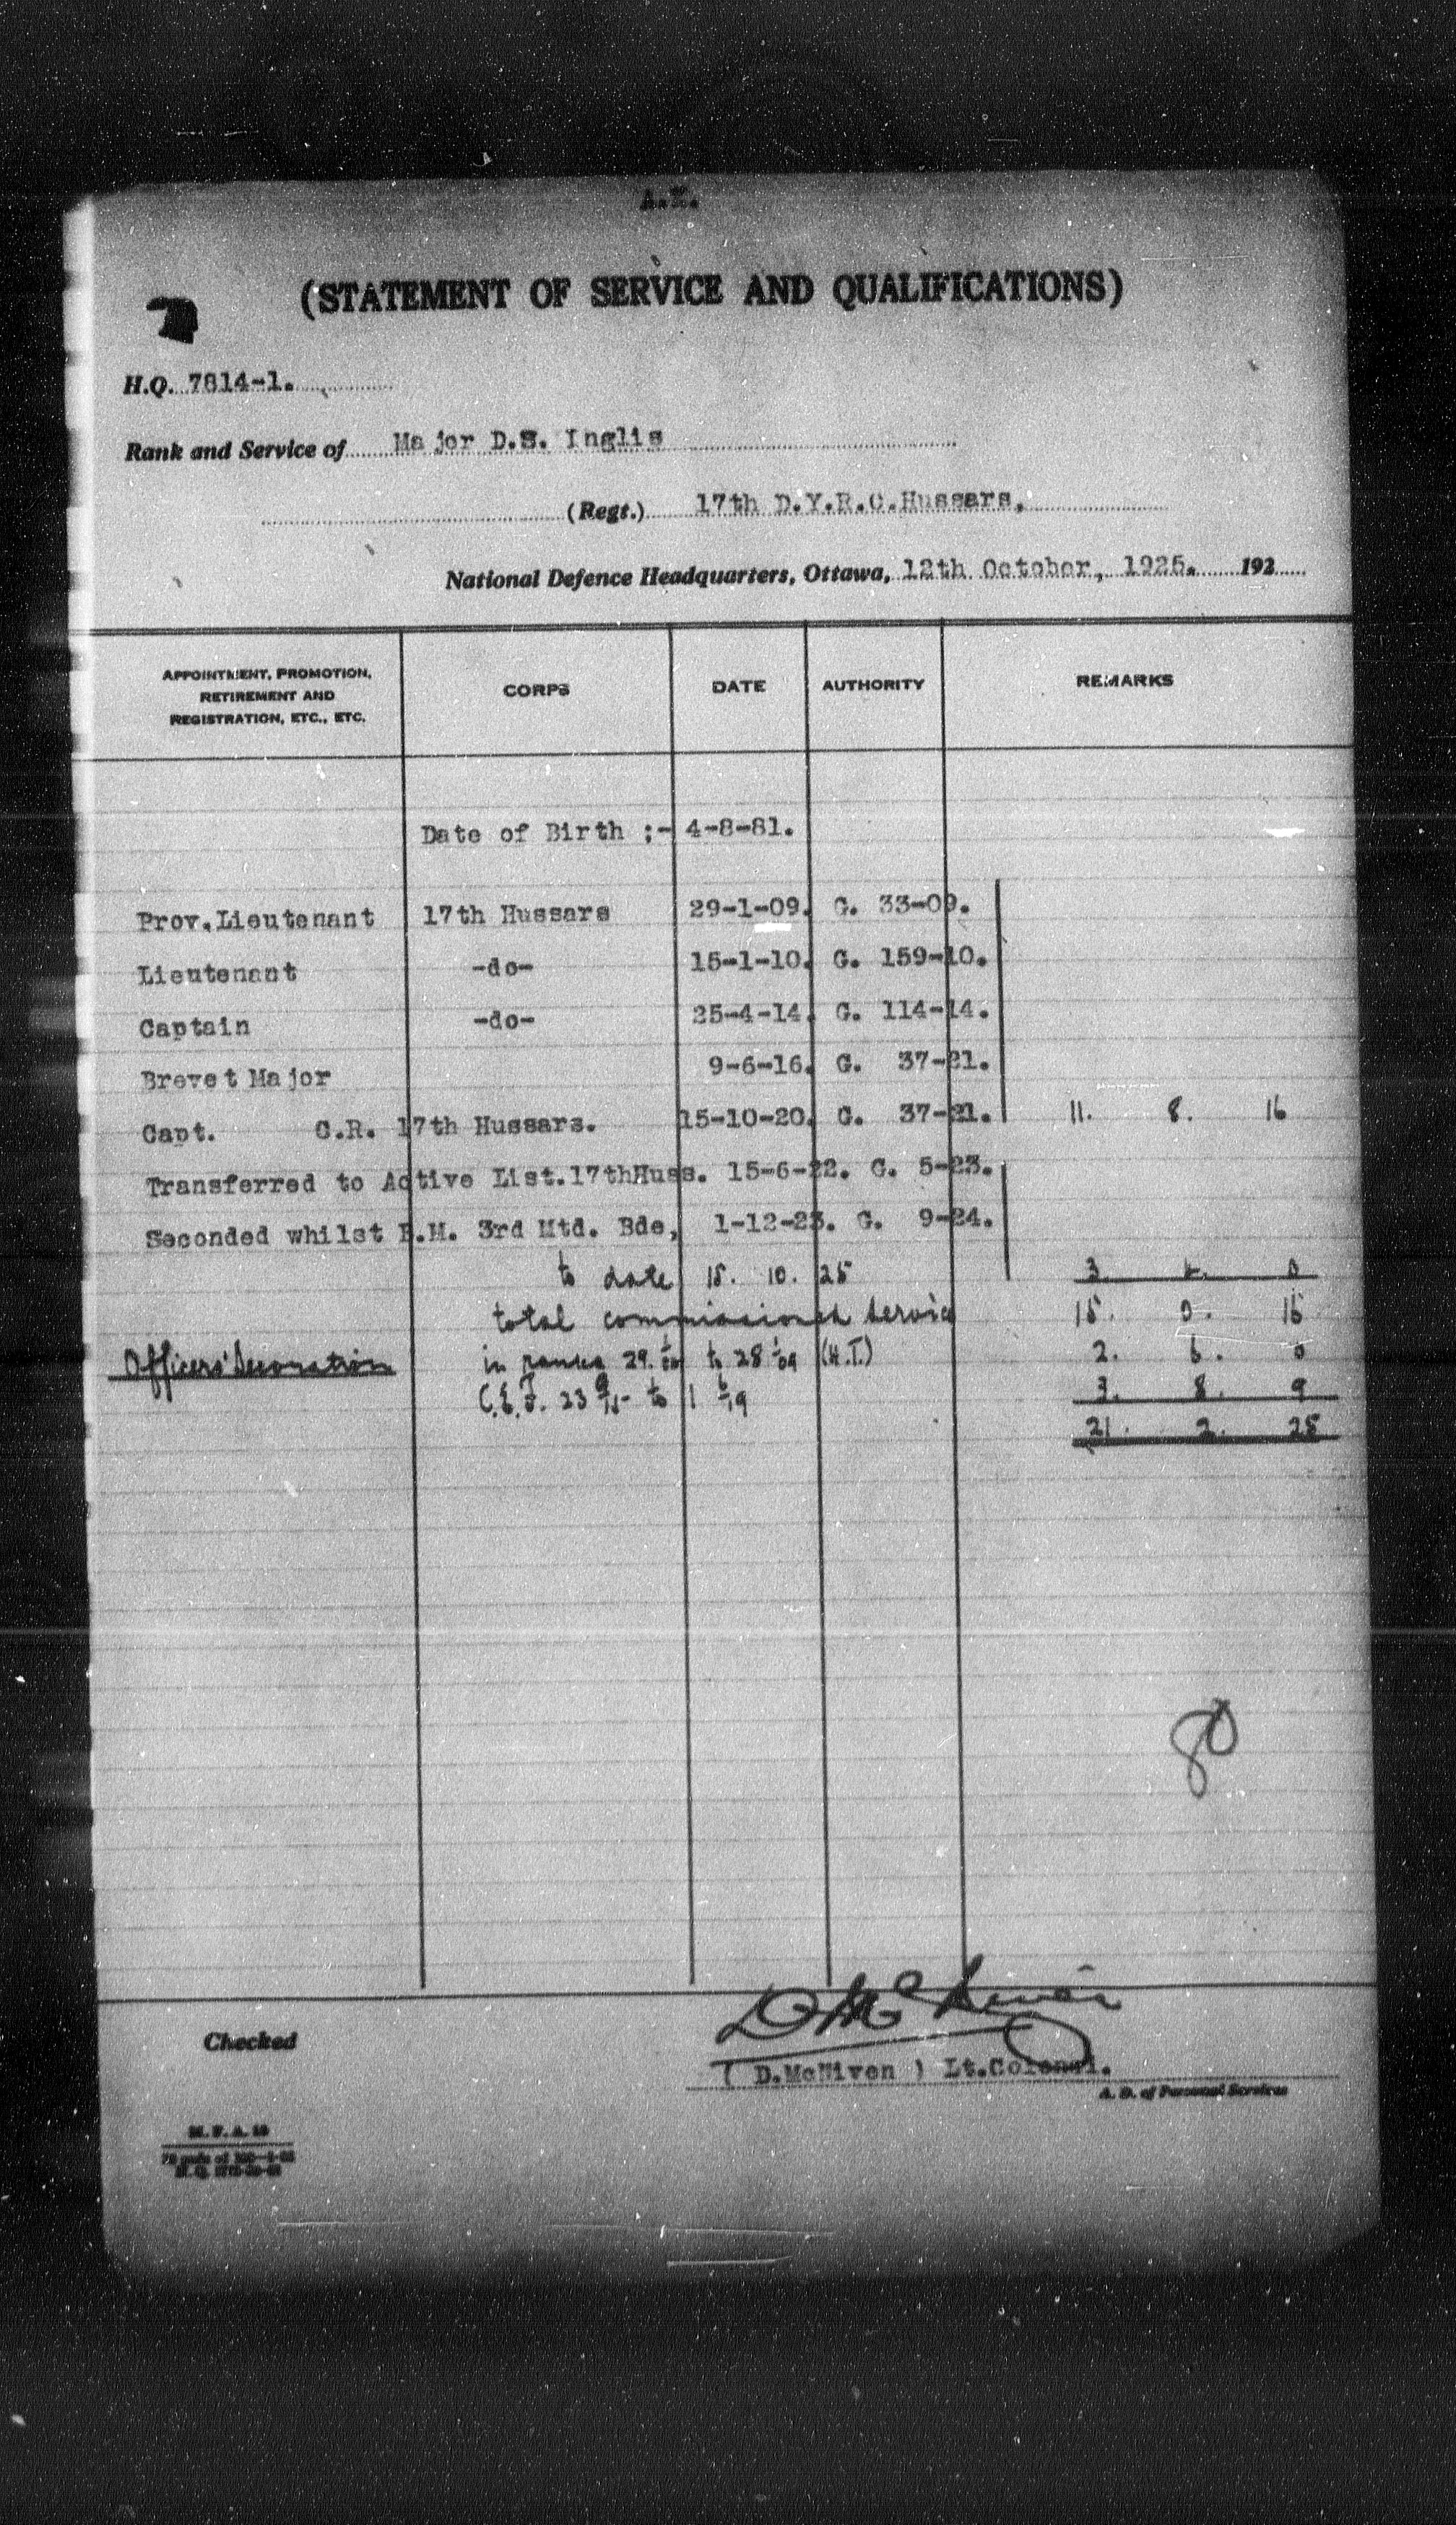 (STATEMENT OF SERVICE AND QUALIFICATIONS)
H.Q. 7814-1.
Rank and Service of Major D.S. Inglis
(Regt.) 17th D.Y.R.C.Hussars,
National Defence Headquarters, Ottawa, 12th October, 1925. 192
APPOINTMENT, PROMOTION, RETIREMENT AND REGISTRATION, ETC., ETC. CORPS DATE AUTHORITY REMARKS
Date of Birth :- 4-8-81.
Prov.Lieutenant 17th Hussars 29-1-09. G. 33-09.
Lieutenant -do- 15-1-10. G. 159-10.
Captain -do- 25-4-14. G. 114-14.
Brevet Major 9-6-16. G. 37-21.
Capt. C.R. 17th Hussars. 15-10-20. G. 37-21. 11. 8. 16
Transferred to Active List.17thHuss. 15-6-22. G. 5-23.
Seconded whilst B.M. 3rd Mtd. Bde, 1-12-23. G. 9-24.
to date 15. 10. 25 3. 4. 0
total commissioned service 15. 0. 16
Officers' Decoration in ranks 29. to 28 1/09 (H.T.) 2. 6. 0
C.E.F. 23 9/15 to 1 6/19 3. 8. 9
21. 2. 25
80
D McNiven
( D.McNiven ) Lt.Colonel.
A. D. of Personal Services
Checked
M. F. A. 10